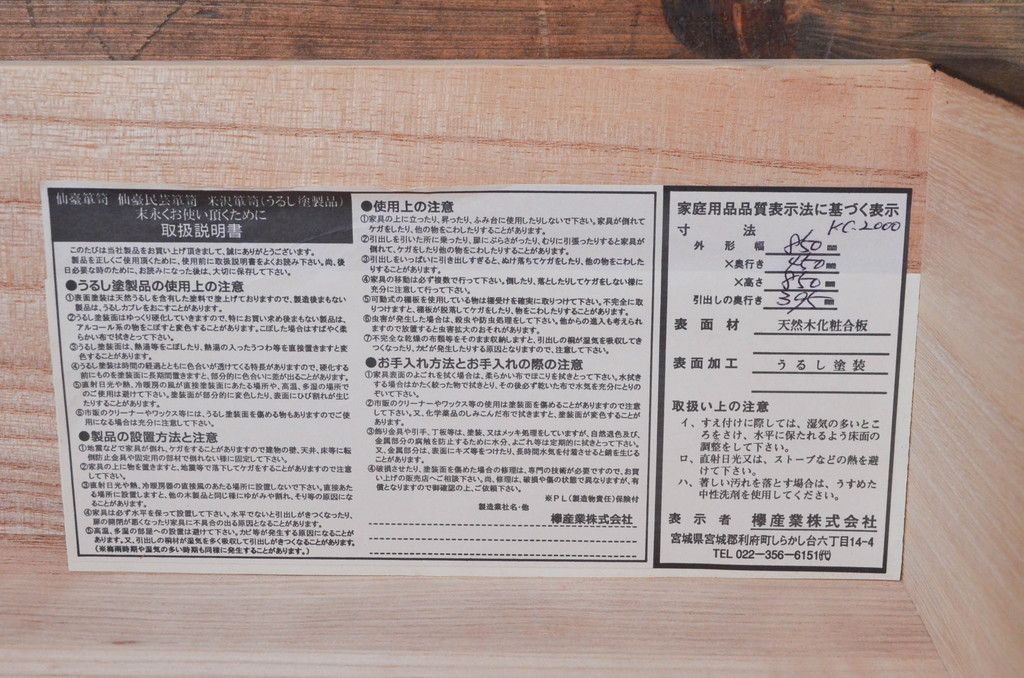 仙臺箪笥 仙臺民芸箪笥 米沢箪笥(うるし塗製品)
末永くお使い頂くために
取扱説明書
このたびは当社製品をお買い上げ頂きまして、誠にありがとうございます。
製品を正しくご使用頂くために、使用前に取扱説明書をよくお読み下さい。尚、後
日必要な時のために、お読みになった後は、大切に保存して下さい。
●うるし塗製品の使用上の注意
①表面塗装は天然うるしを含有した塗料で塗上げておりますので、製造後まもない
製品は、うるしカブレをおこすことがあります。
②うるし塗装面はゆっくり硬化していきますので、特にお買い求め後まもない製品は、
アルコール系の物をこぼすと変色することがあります。こぼした場合はすばやく柔
らかい布で拭きとって下さい。
③うるし塗装面は、熱湯等をこぼしたり、熱湯の入ったうつわ等を直接置きますと変
色することがあります。
④うるし塗装は時間の経過とともに色合いが透けてくる特長がありますので、硬化する
前にものを塗装面に長期間置きますと、部分的に色合いに差が出ることがあります。
⑤直射日光や熱、冷暖房の風が直接塗装面にあたる場所や、高温、多湿の場所で
のご使用は避けて下さい。塗装面が部分的に変色したり、表面にひび割れが生じ
たりすることがあります。
⑥市販のクリーナーやワックス等には、うるし塗装面を傷める物もありますのでご使
用になる場合は充分に注意して下さい。
●製品の設置方法と注意
①地震などで家具が倒れ、ケガをすることがありますので建物の壁、天井、床等に転
倒防止金具や固定用の部材で倒れない様に固定して下さい。
②家具の上に物を置きますと、地震等で落下してケガをすることがありますので注意
して下さい。
③直射日光や熱、冷暖房器の直接風のあたる場所に設置しないで下さい。直接あた
る場所に設置しますと、他の木製品と同じ様にゆがみや割れ、そり等の原因にな
ることがあります。
④家具は必ず水平を保って設置して下さい。水平でないと引出しがきつくなったり、
扉の開閉が悪くなったり家具に不具合の出る原因となることがあります。
⑤高温、多湿の部屋への設置は避けて下さい。カビ等が発生する原因になることが
あります。又、引出しの桐材が湿気を多く吸収して引出しがきつくなることがあります。
(※梅雨時期や湿気の多い時期も同様に発生することがあります。)
●使用上の注意
①家具の上に立ったり、昇ったり、ふみ台に使用したりしないで下さい。家具が倒れて
ケガをしたり、他の物をこわしたりすることがあります。
②引出しを引いた所に乗ったり、扉にぶらさがったり、むりに引張ったりすると家具が
倒れて、ケガをしたり他の物をこわしたりすることがあります。
③引出しをいっぱいに引き出しすぎると、ぬけ落ちてケガをしたり、他の物をこわした
りすることがあります。
④家具の移動は必ず複数で行って下さい。倒したり、落としたりしてケガをしない様に
充分に注意して行って下さい。
⑤可動式の棚板を使用している物は棚受けを確実に取りつけて下さい。不完全に取
りつけますと、棚板が脱落してケガをしたり、物をこわしたりすることがあります。
⑥虫害が発生した場合は、殺虫や防虫処理をして下さい。他からの進入も考えられ
ますので放置すると虫害拡大のおそれがあります。
⑦不完全な乾燥の布類等をそのまま収納しますと、引出しの桐が湿気を吸収してき
つくなったり、カビが発生したりする原因となりますので、注意して下さい。
●お手入れ方法とお手入れの際の注意
①家具表面のよごれを拭く場合は、柔らかい布でほこりを拭きとって下さい。水拭き
する場合はかたく絞った物で拭きとり、その後必ず乾いた布で水気を充分にとりの
ぞいて下さい。
②市販のクリーナーやワックス等の使用は塗装面を傷めることがありますので注意
して下さい。又、化学薬品のしみこんだ布で拭きますと、塗装面が変色することが
あります。
③飾り金具や引手、丁板等は、塗装、又はメッキ処理をしていますが、自然退色及び、
金属部分の腐触を防止するために水分、よごれ等は定期的に拭きとって下さい。
又、金属部分は、表面にキズ等をつけたり、長時間水気を付着させると錆を生じる
ことがあります。
④破損させたり、塗装面を傷めた場合の修理は、専門の技術が必要ですので、お買
い上げの販売店へご相談下さい。尚、修理は、破損や傷の状態で異なりますが、有
償となりますので御確認の上、ご依頼下さい。
※PL(製造物責任)保険付
製造業社名・他
欅産業株式会社
家庭用品品質表示法に基づく表示
寸 法 KC-2000
外形幅 850 mm
×奥行き 450 mm
×高さ 850 mm
引出しの奥行き 395 mm
表面材 天然木化粧合板
表面加工 うるし塗装
取扱い上の注意
イ、すえ付けに際しては、湿気の多いとこ
ろをさけ、水平に保たれるよう床面の
調整をして下さい。
ロ、直射日光又は、ストーブなどの熱を避
けて下さい。
ハ、著しい汚れを落とす場合は、うすめた
中性洗剤を使用してください。
表示者 欅産業株式会社
宮城県宮城郡利府町しらかし台六丁目14-4
TEL 022-356-6151㈹